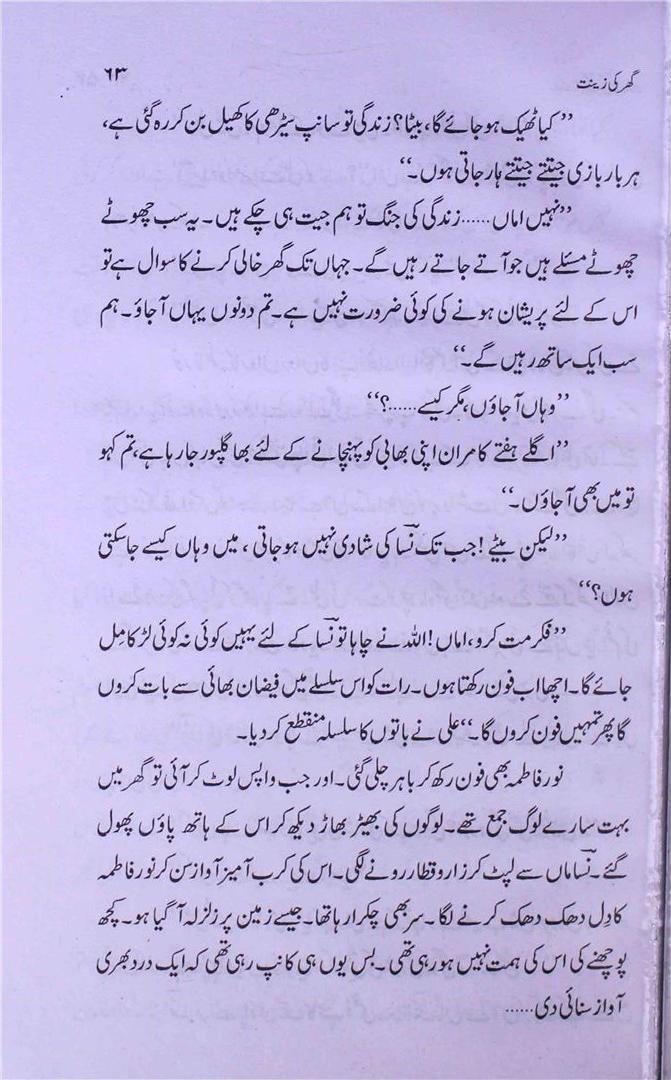 گھر کی زینت
۶۳
”کیا ٹھیک ہوجائے گا، بیٹا؟ زندگی تو سانپ سیڑھی کا کھیل بن کر رہ گئی ہے،
ہر بار بازی جیتتے جیتتے ہار جاتی ہوں۔“
”نہیں اماں...... زندگی کی جنگ تو ہم جیت ہی چکے ہیں۔ یہ سب چھوٹے
چھوٹے مسئلے ہیں جو آتے جاتے رہیں گے۔ جہاں تک گھر خالی کرنے کا سوال ہے تو
اس کے لئے پریشان ہونے کی کوئی ضرورت نہیں ہے۔ تم دونوں یہاں آجاؤ۔ ہم
سب ایک ساتھ رہیں گے۔“
”وہاں آجاؤں، مگر کیسے.....؟“
”اگلے ہفتے کامران اپنی بھابی کو پہنچانے کے لئے بھاگلپور جارہا ہے، تم کہو
تو میں بھی آجاؤں۔“
”لیکن بیٹے! جب تک نسؔا کی شادی نہیں ہوجاتی، میں وہاں کیسے جاسکتی
ہوں؟“
”فکر مت کرو، اماں! اللہ نے چاہا تو نسؔا کے لئے یہیں کوئی نہ کوئی لڑکا مِل
جائے گا۔ اچھا اب فون رکھتا ہوں۔ رات کو اس سلسلے میں فیضان بھائی سے بات کروں
گا پھر تمہیں فون کروں گا۔“ علی نے باتوں کا سلسلہ منقطع کردیا۔
نور فاطمہ بھی فون رکھ کر باہر چلی گئی۔ اور جب واپس لوٹ کر آئی تو گھر میں
بہت سارے لوگ جمع تھے۔ لوگوں کی بھیڑ بھاڑ دیکھ کر اس کے ہاتھ پاؤں پھول
گئے۔ نسؔا ماں سے لپٹ کر زار و قطار رونے لگی۔ اس کی کرب آمیز آواز سن کر نور فاطمہ
کا دِل دھک دھک کرنے لگا۔ سر بھی چکرا رہا تھا۔ جیسے زمین پر زلزلہ آگیا ہو۔ کچھ
پوچھنے کی اس کی ہمت نہیں ہورہی تھی۔ بس یوں ہی کانپ رہی تھی کہ ایک درد بھری
آواز سنائی دی......